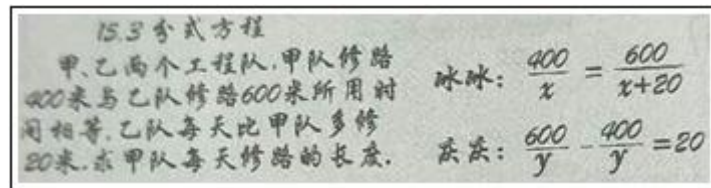 15.3 分式方程
甲、乙两个工程队,甲队修路
400米与乙队修路600米所用时
间相等,乙队每天比甲队多修
20米.求甲队每天修路的长度.
冰冰: 400/x = 600/(x+20)
庆庆: 600/y - 400/y = 20